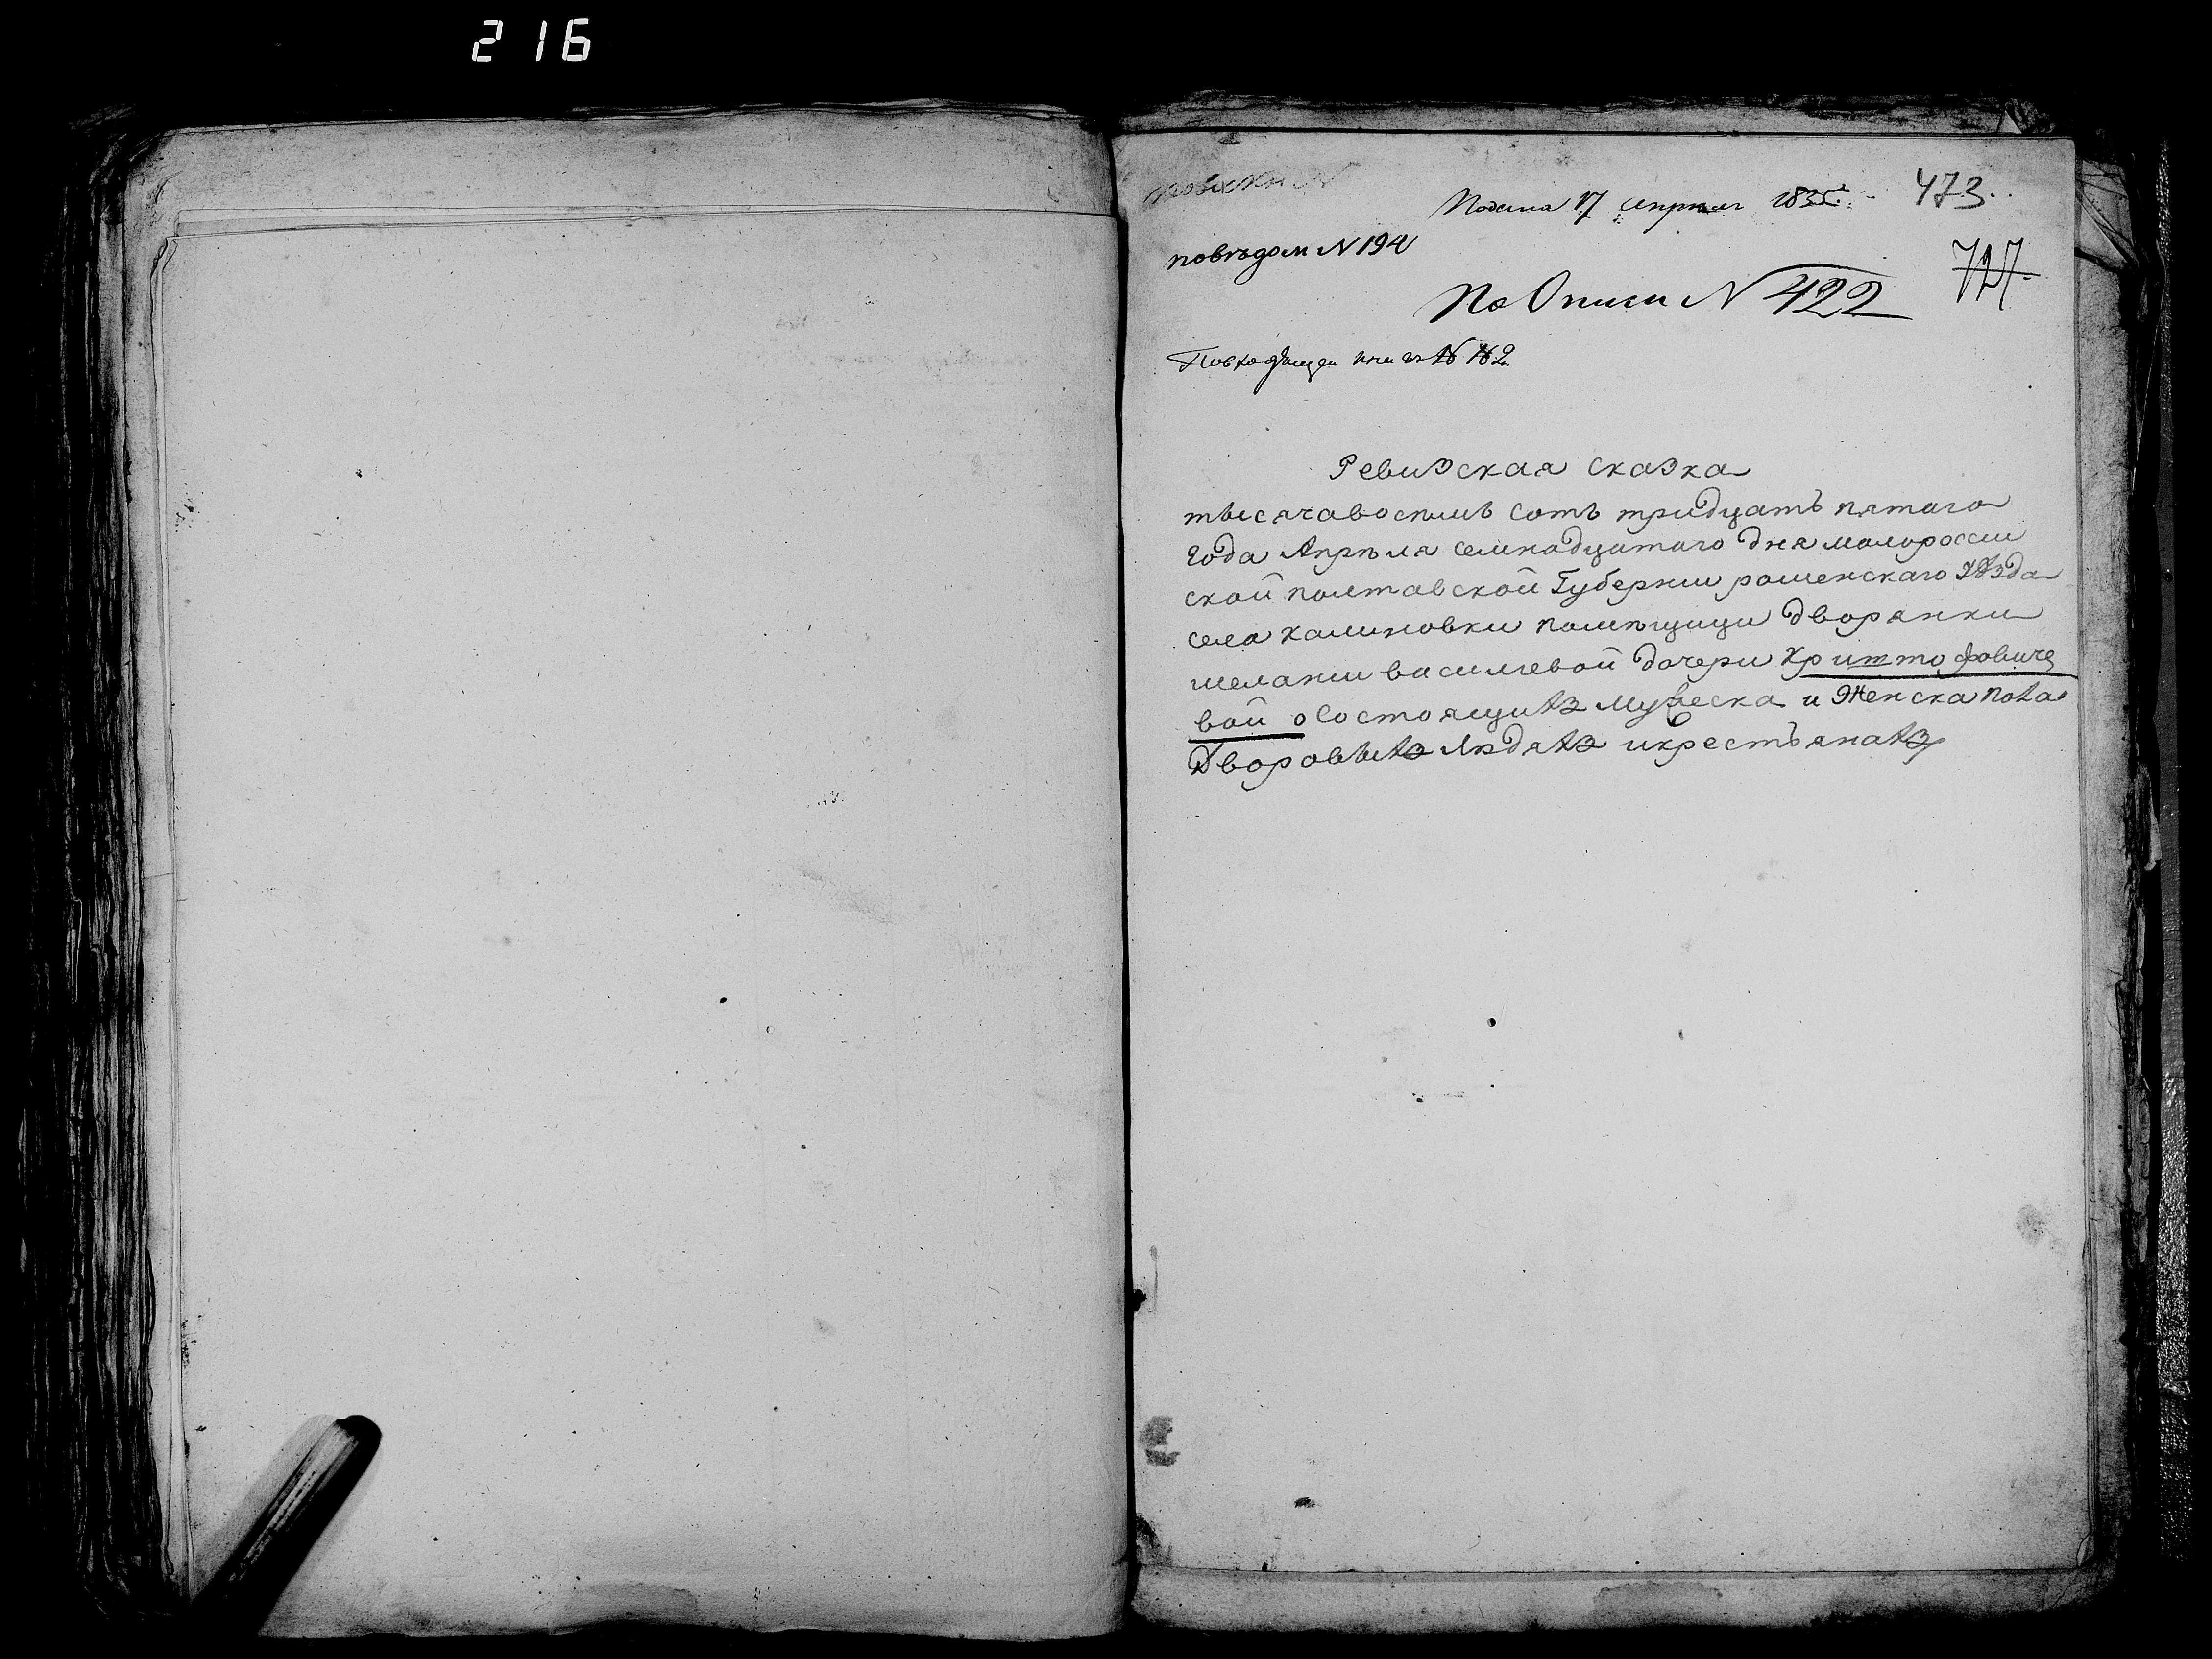 216
Подана 17 апреля 1835. 473.
повъдом N 194
727
По Описи N 422
Повходящей книги N 162
Ревизская сказка
тысяча восемь сотъ тридцать пятаго
года Апрѣля семнадцатаго дня малоросси
ской полтавской Губернии роменскаго уѣзда
села калиновки помѣщици дворянки
мелании василевой дочери Христофовиче
вой о состоящихъ мужеска и женска пола
Дворовыхъ людяхъ и крестьянахъ